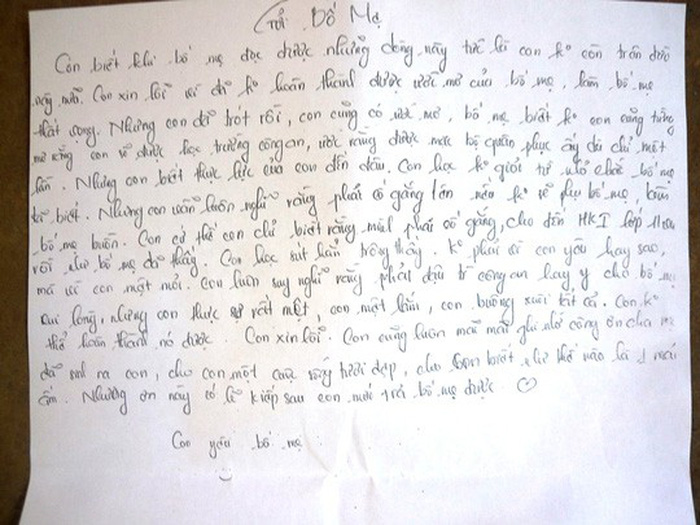 Gửi Bố Mẹ
Con biết khi bố mẹ đọc được những dòng này tức là con ko còn trên đời
này nữa. Con xin lỗi vì đã ko hoàn thành được ước mơ của bố mẹ, làm bố mẹ
thất vọng. Nhưng con đã trót rồi, con cũng có ước mơ, bố mẹ biết ko con cũng từng
mơ rằng con sẽ được học trường công an, ước rằng được mặc bộ quân phục ấy dù chỉ một
lần. Nhưng con biết thực lực của con đến đâu. Con học ko giỏi từ nhỏ chắc bố mẹ
đã biết. Nhưng con vẫn luôn nghĩ rằng phải cố gắng lên nếu ko sẽ phụ bố mẹ, làm
bố mẹ buồn. Con cứ thế con chỉ biết rằng mình phải cố gắng, cho đến HKI lớp 11
rồi như bố mẹ đã thấy. Con học sút hẳn trông thấy. Ko phải vì con yêu hay sao,
mà vì con mệt mỏi. Con luôn suy nghĩ rằng phải đậu công an hay y cho bố mẹ
vui lòng, nhưng con thực sự rất mệt, con mệt lắm, con buông xuôi tất cả. Con ko
thể hoàn thành nó được. Con xin lỗi. Con cũng luôn mãi mãi ghi nhớ công ơn cha mẹ
đã sinh ra con, cho con một cuộc sống tươi đẹp, cho con biết như thế nào là 1 mái
ấm. Nhưng ơn này có lẽ kiếp sau con mới trả bố mẹ được
Con yêu bố mẹ